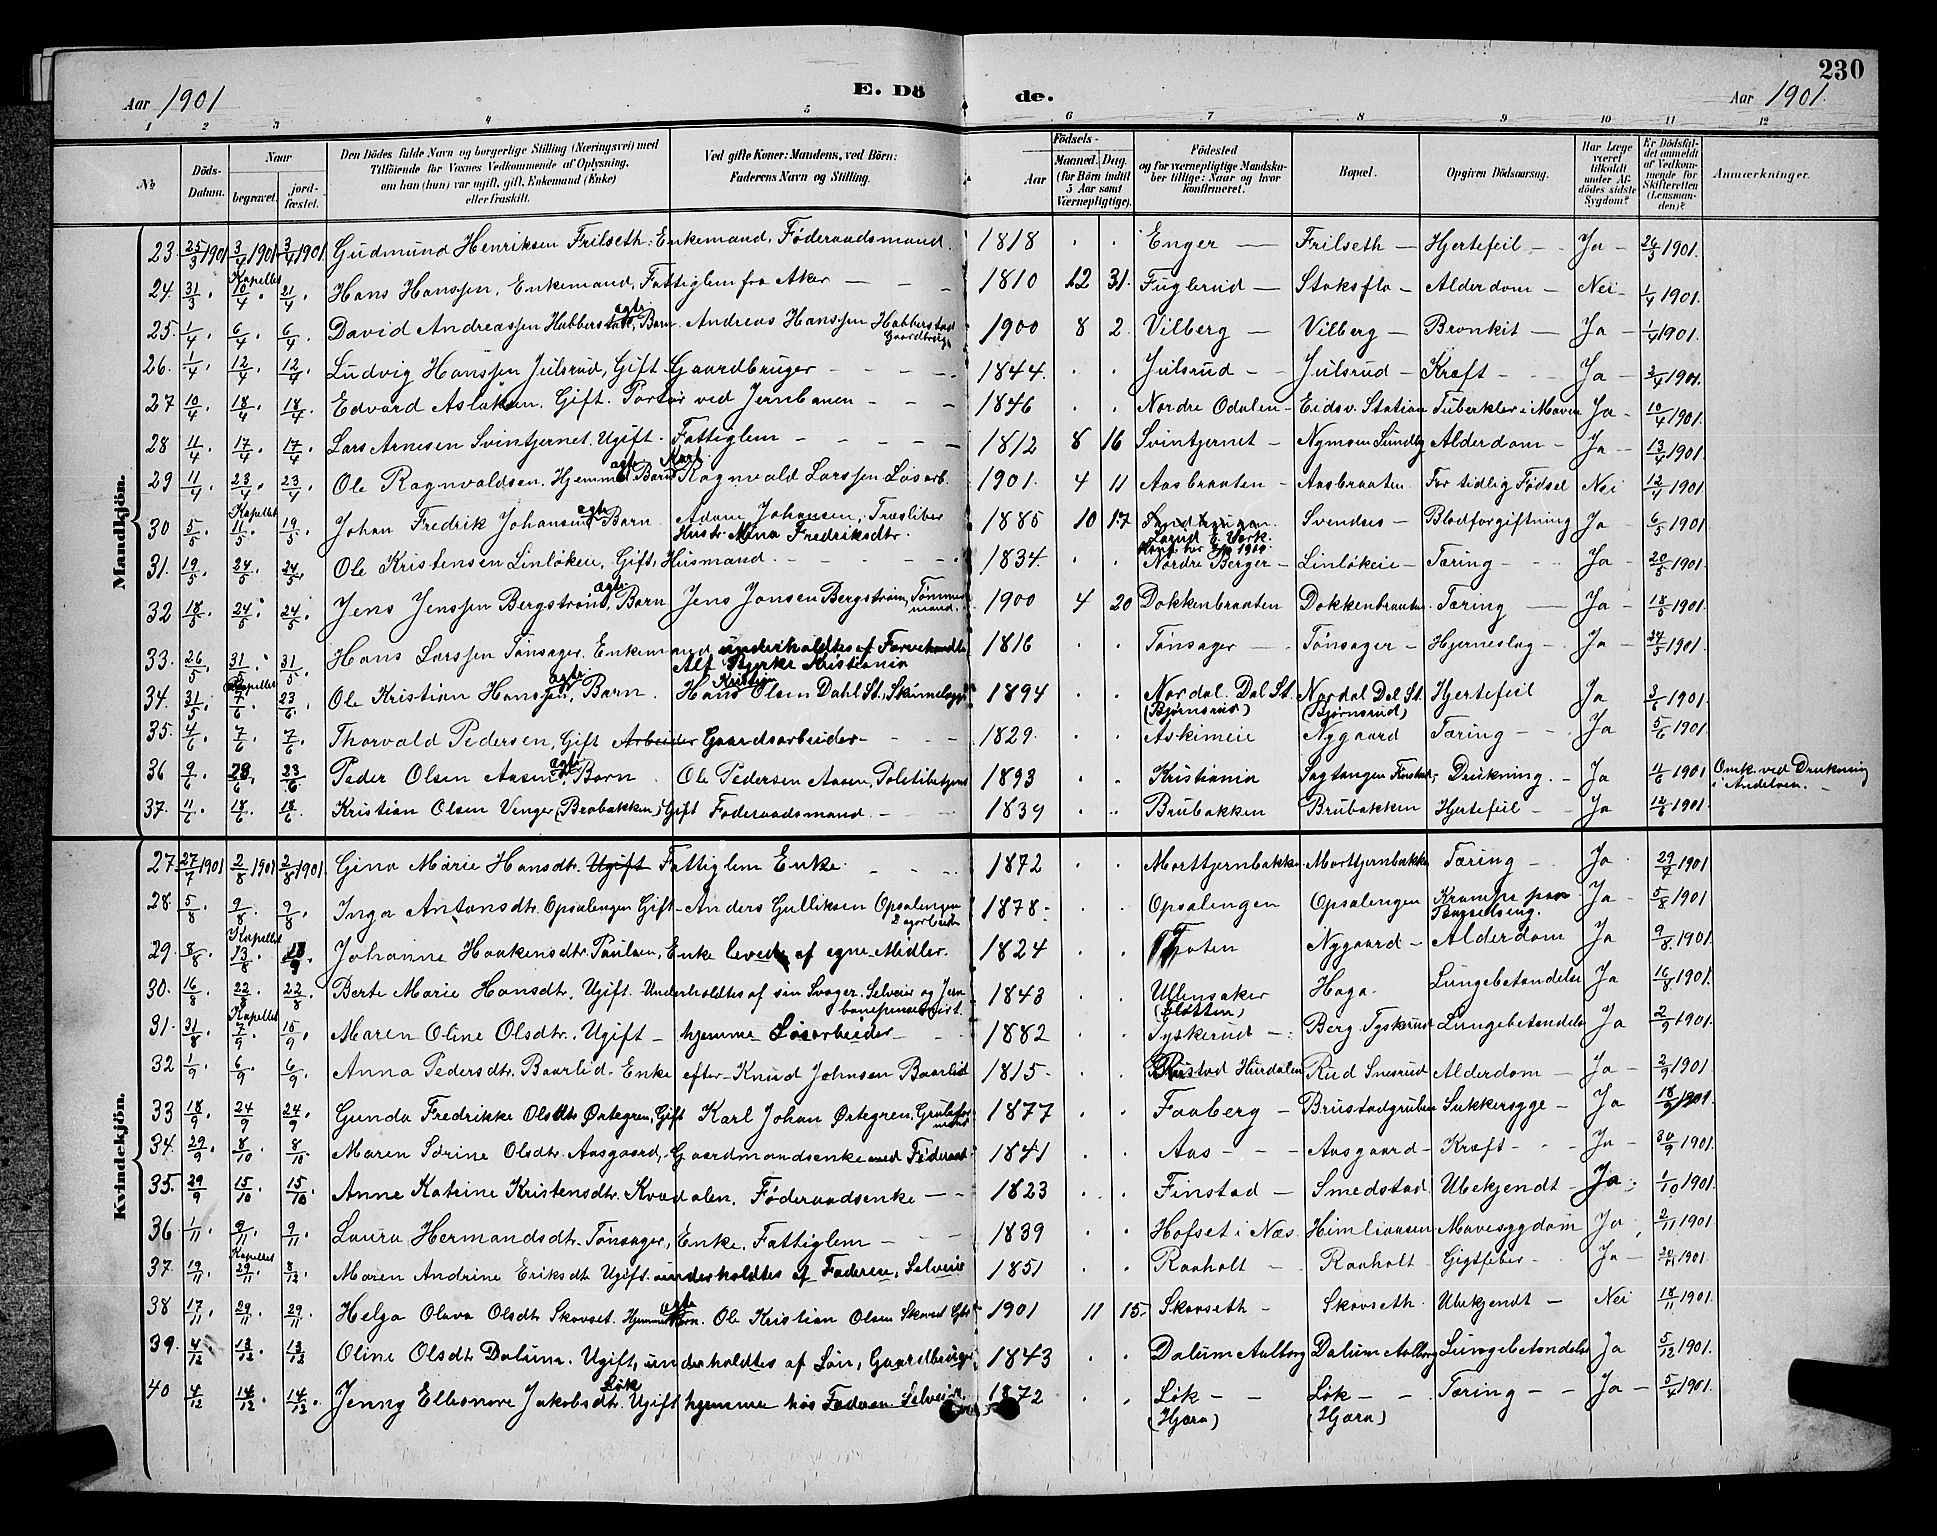 230
Aar 1901 E. Dö de. Aar 1901.
1 2 3 4 5 6 7 8 9 10 11 12
№ Döds-Datum. Naar begravet. jordfæstet. Den Dödes fulde Navn og borgerlige Stilling (Næringsvei) med Tilföiende for Voxnes Vedkommende af Oplysning, om han (hun) var ugift, gift, Enkemand (Enke) eller fraskilt. Ved gifte Koner: Mandens, ved Börn: Faderens Navn og Stilling. Födsels- Aar Maaned. Dag. (for Börn indtil 5 Aar samt Værnepligtige). Födested og for værnepligtige Mandskaber tillige: Naar og hvor konfirmeret. Bopæl. Opgiven Dödsaarsag. Har Læge været tilkaldt under Afdödes sidste Sygdom? Er Dödsfaldet anmeldt af Vedkommende for Skifteretten (Lensmanden)? Anmærkninger.
Mandkjön.
23. 25/3 1901 3/4 1901 3/4 1901 Gudmund Henriksen Frilseth. Enkemand, Föderaadsmand. 1818 . . Enger — Frilseth — Hjertefeil - Ja - 26/3 1901.
24. 31/3. Kapellet 10/4. 21/4. Hans Hanssen. Enkemand, Fattiglem fra Aker — 1810 12 31. Fuglerud — Stoksflo — Alderdom — Nei - 1/4 1901.
25. 1/4. 6/4. 6/4. David Andreassen Habberstad, ægte Barn. Andreas Hanssen Habberstad Gaardbrug. 1900 8 2. Vilberg — Vilberg — Bronkit — Ja - 1/4 1901.
26. 1/4. 12/4. 12/4. Ludvig Hanssen Julsrud, Gift Gaardbruger - - - 1844. . . Julsrud - - Julsrud - Kræft - - Ja - 3/4 1901.
27 10/4. 18/4. 18/4. Edvard Aslaksen. Gift. Portör ved Jernbanen - - - 1846 . . Nordre Odalen - Eidsv. Station Tuberkler i Maven Ja - 10/4 1901.
28 11/4. 17/4. 17/4. Lars Arnesen Svintjernet. Ugift. Fattiglem - - - 1812 8 16 Svintjernet - Nymoen Sundby Alderdom — Ja - 13/4 1901.
29 11/4. 23/4. 23/4. Ole Ragnvaldsen. Hjemme ægte Barn Ragnvald Larssen Lösarb. 1901. 4 11 Aasbraaten - Aasbraaten. For tidlig Födsel Nei 12/4 1901
30 5/5. Kapellet 11/5. 19/5. Johan Fredrik Johansen ægte Barn. Adam Johansen, Træsliber
Hustr. Mina Fredriksdtr. 1885 10 17 Svendses - Blodforgiftning Ja - 6/5 1901
31. 19/5. 24/5. 24/5. Ole Kristensen Linlökeie, Gift, Husmand. 1834. . . Nordre Berger - Linlökeie - Tæring - - Ja - 20/5 1901
32 18/5. 24/5. 24/5. Jens Jenssen Bergström, ægte Barn Jens Jonsen Bergström, Tömmermand. 1900 4 20 Dokkenbraaten Dokkenbraaten. Tæring — Ja - 18/5 1901
33. 26/5. 31/5. 31/5. Hans Larssen Tönsager. Enkemand underholdtes af Farvehandler
Alf Bjerke Kristiania 1816 . . Tönsager — Tönsager - Hjerneslag - Ja - 24/5 1901.
34. 31/5. Kapellet 7/6. 23/6. Ole Kristian Hanssen, ægte Barn. Hans Kristian Olsen Dahl St. 1894 . . Nordal. Dal St. (Björnsrud) Nordal Dal St. (Björnsrud) Hjertefeil Ja 3/6 1901.
35. 4/6. 7/6. 7/6. Thorvald Pedersen, Gift Arbeider Gaardsarbeider - 1829. . . Askimeie Nygaard Tæring - - Ja - 5/6 1901.
36 9/6. 23/6. 23/6. Peder Olsen Aasen. ægte Barn. Ole Pedersen Aasen, Politibetjent 1893 . . Kristiania Sagtangen Finstad; Drukning. - Ja 11/6 1901 Omk. ved Drukning i Andelven. -
37. 11/6. 18/6. 18/6. Kristian Olsen Venger (Brobakken) Gift Föderaadsmand. 1839 . . Brubakken Brubakken Hjertefeil - Ja 12/6 1901.
Kvindekjön.
27 27/7 1901 2/8 1901 2/8 1901. Gina Marie Hansdtr. Ugift Fattiglem Enke. 1872 . . Morttjernbakke. Morttjernbakke Tæring - Ja. 29/7 1901
28 5/8. 9/8. 9/8. Inga Antonsdtr. Opsalengen Gift - Anders Gulliksen Opsalengen
Dagarbeider 1878 . . Opsalengen Opsalengen Krampe paa Barselseng. Ja - 5/8 1901
29. 8/8. Kapellet 13/8. Johanne Haakensdtr. Paulsen, Enke levede af egne Midler. 1824 . . Thoten Nygaard - Alderdom Ja 9/8 1901.
30. 16/8. 22/8. 22/8. Berte Marie Hansdt. Ugift. Underholdtes af sin Svoger, Selveier og Jern
banepensionist. 1843 . . Ullensaker (Flötten) Haga. Lungebetændelse Ja 16/8 1901.
31. 31/8. Kapellet 7/9. 15/9. Maren Oline Olsdtr. Ugift - hjemme Lösarbeider - 1882 . . Tyskerud - Berg Tyskerud Lungebetændelse Ja 2/9 1901.
32 1/9. 6/9. 6/9. Anna Pedersdtr. Baarlid. Enke efter - Knud Johnsen Baarlid 1815 . . Rustad Hurdalen Rud Snesrud Alderdom - Ja - 2/9 1901.
33 18/9. 24/9 24/9. Gunda Fredrikke Olsdtr. Örtegren, Gift Karl Johan Örtegren, 1877 . . Faaberg - Brustadgruben Sukkersyge - Ja 18/9 1901.
34. 29/9. 8/10. 8/10. Maren Sörine Olsdtr. Aasgaard, Gaardmandsenke med Föderaad 1841 . . Aas - - - Aasgaard - Kræft - - Ja - 30/9 1901.
35. 29/9 15/10. 15/10. Anne Katrine Kristensdtr. Kvadalen. Föderaadsenke - - 1823 . . Finstad - Smedstad. Ubekjendt - Ja. 1/10 1901.
36 1/11. 9/11. 9/11. Laura Hermandsdtr. Tönsager, Enke, Fattiglem - 1839 . . Hofset i Næs. Himliaasen Mavesygdom Ja. 2/11 1901
37. 19/11. Kapellet 29/11. 8/12. Maren Andrine Eriksdtr. Ugift. underholdtes af Faderen, Selveier 1851 . . Raaholt - Raaholt - Gigtfeber - Ja - 20/11 1901.
38 17/11. 29/11. 29/11. Helga Olava Olsdtr. Skovset. Hjemme ægte Barn. Ole Kristian Olsen Skovset 1901 11 15. Skovseth - Skovseth. Ubekjendt - Nei 18/11 1901.
39. 4/12. 13/12. 13/12 Oline Olsdtr. Dalum. Ugift, underholdtes af Sön, Gaardbruger 1843 . . Dalum Aalborg Dalum Aalborg Lungebetændelse Ja 5/12 1901.
40 4/12 14/12. 14/12. Jenny Elleonore Jakobsdtr. Lök Ugift hjemme hos Faderen Selveier. 1872 . . Lök - - (Hjæra) Lök - - (Hjæra) Tæring - - Ja - 5/4 1901.